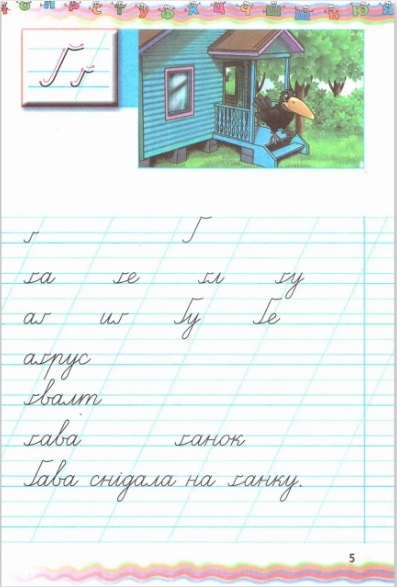 Ґ ґ
ґ Ґ
ґа ґе ґл ґу
аґ иґ Ґу Ґе
аґрус
ґвалт
ґава ґанок
Ґава снідала на ґанку.
5